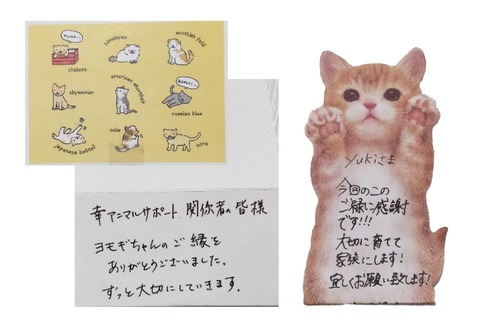 himalayan
scottish fold
chatora
american shorthair
abyssinian
russian blue
mike
japanese bobtail
幸アニマルサポート 関係者の皆様
ヨモギちゃんのご縁を
ありがとうございました。
ずっと大切にしていきます。
yukiさま
今回のこの
ご縁に感謝
です!!!
大切に育てて
家族にします!
宜しくお願い致します!